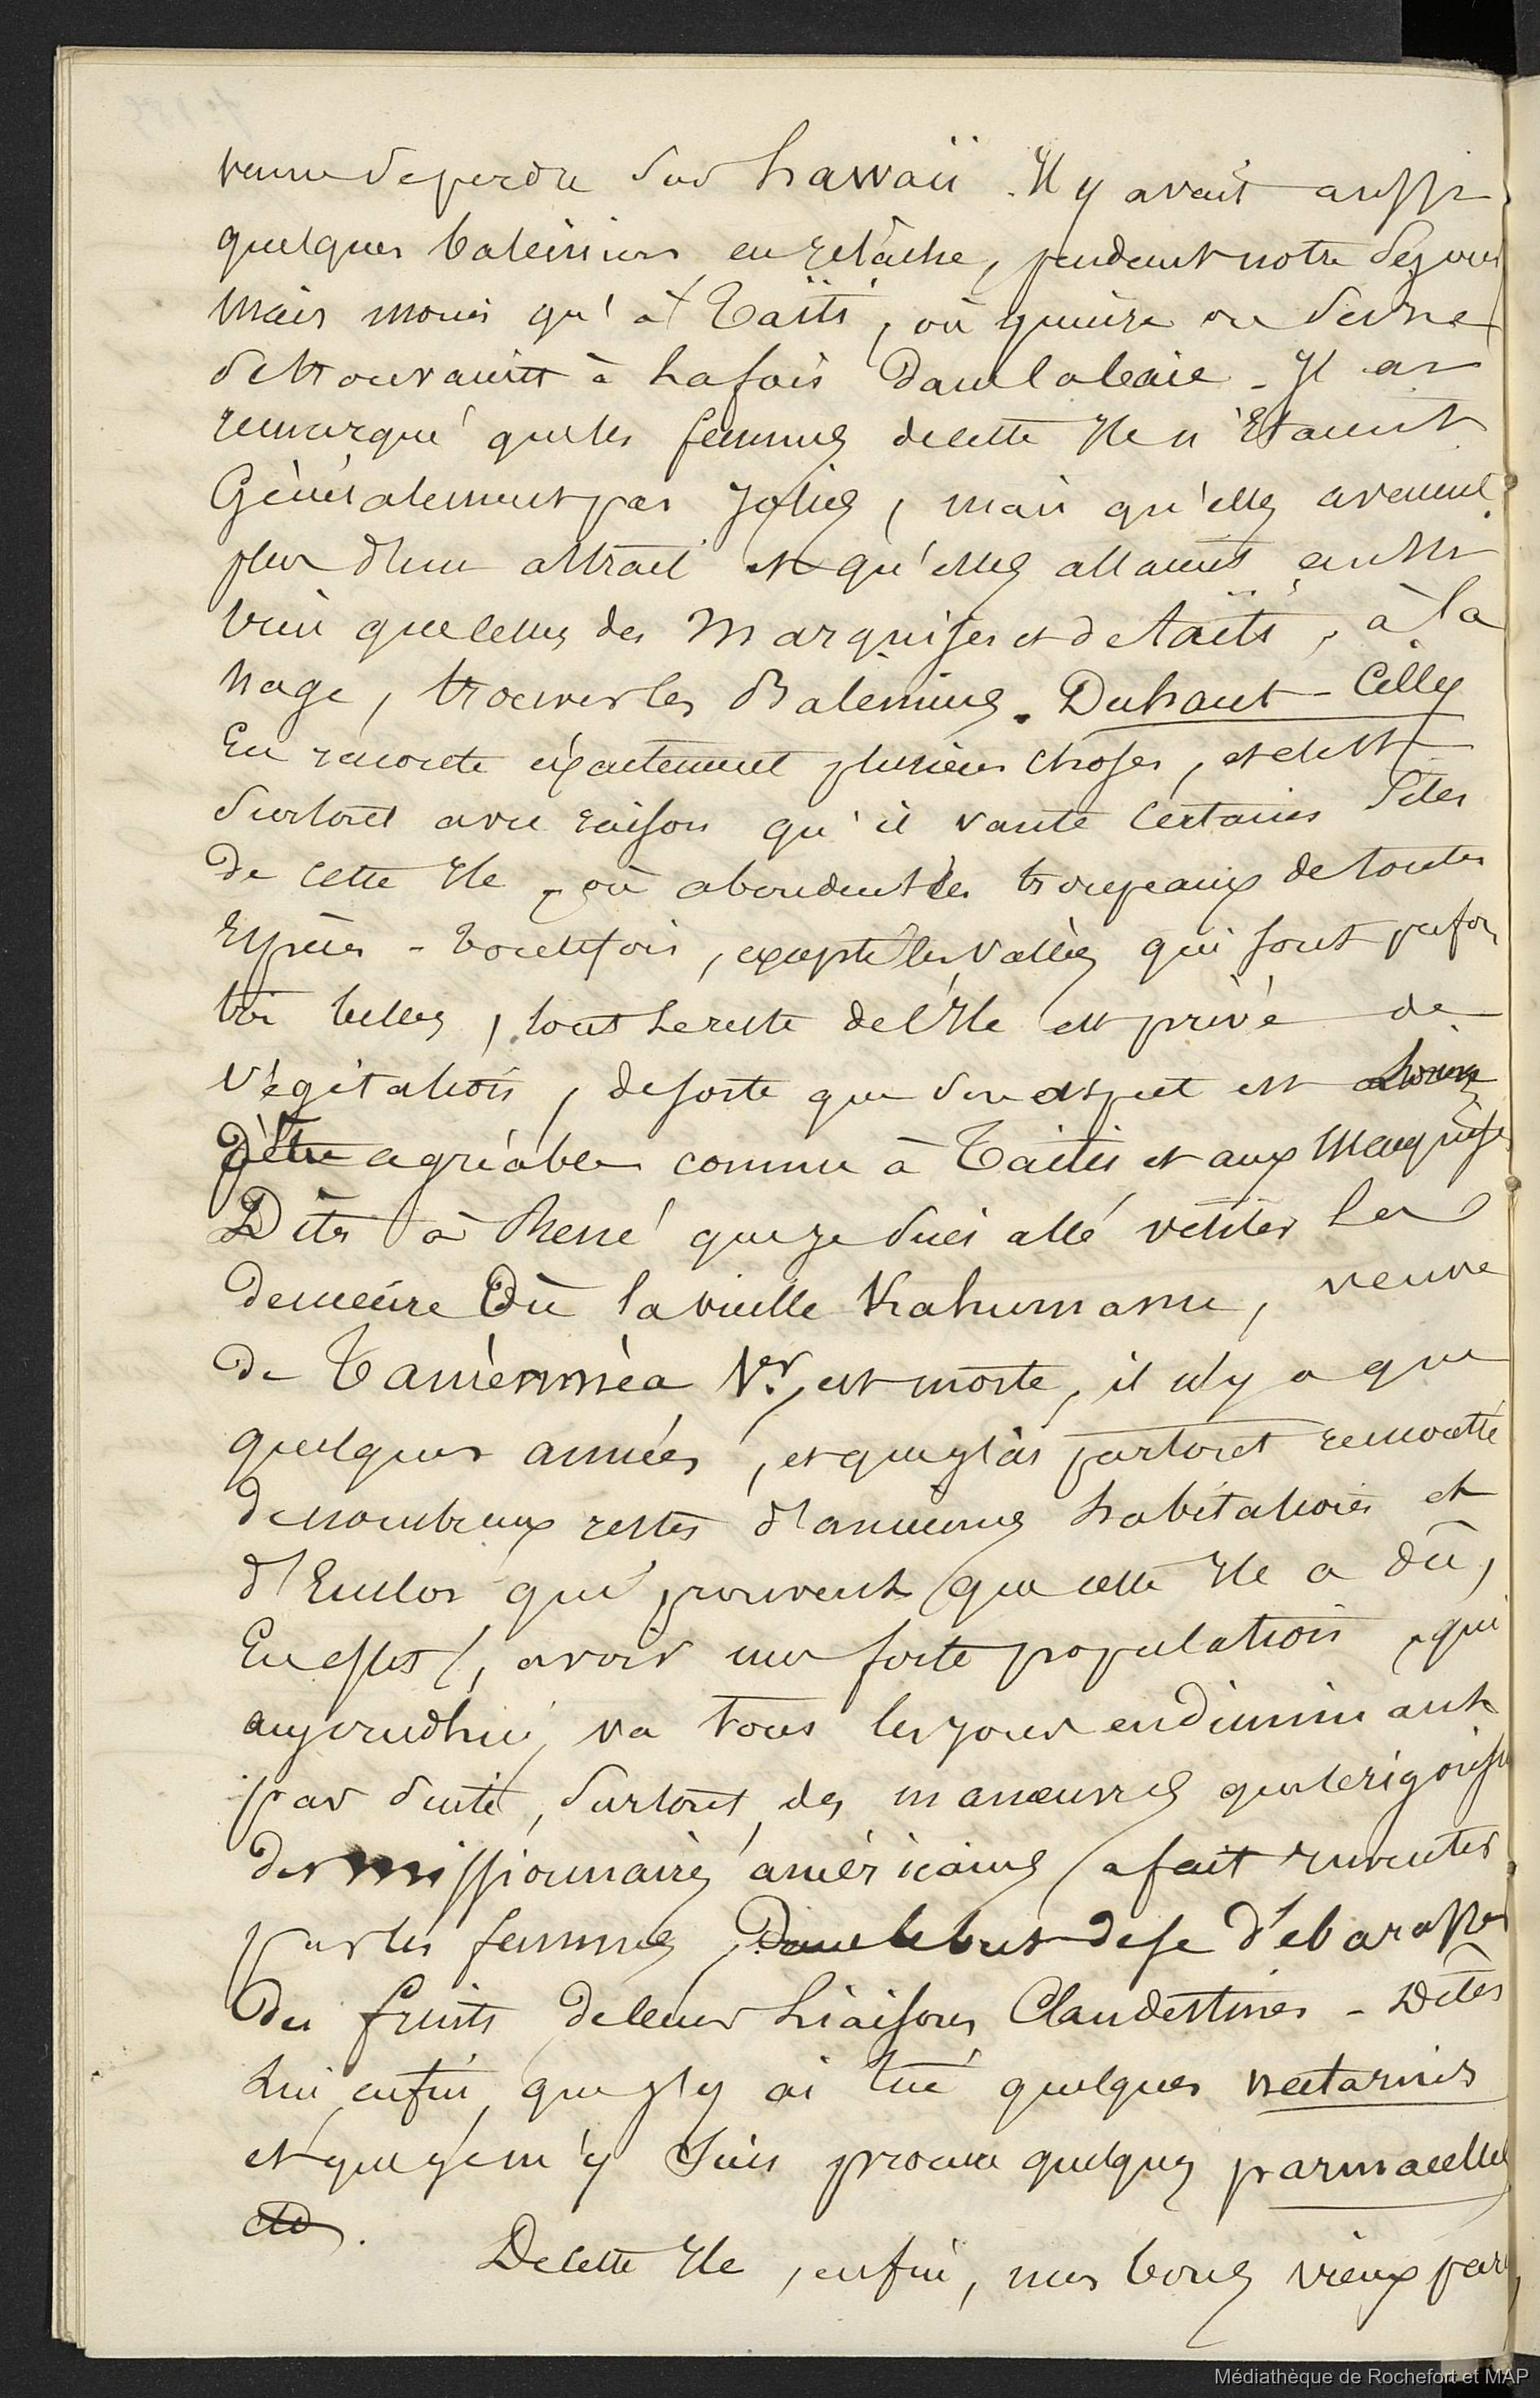 venue se perdre sur hawaii . Il y avait aussi
quelques baleiniers en relâche, pendant notre séjour
mais moins qu'à Taïti, où quinze ou seize
se trouvaient à la fois dans la baie - Il a
remarqué que les femmes de cette Ile n'étaient
Généralement pas jolies, mais qu'elles avaient
plus d'un attrait et qu'elles allaient aussi
bien que celles des Marquises et de taïti, à la
nage, trouver les Baleiniers. Duhaut-Cilly
En raconte éxactement plusieurs choses, et c'est
Surtout avec raison qu'il vante certains Sites
de cette Ile, où abondent les troupeaux de toutes
Espèces - toutefois, excepté les vallées qui sont parfois
très belles, tout le reste de l'Ile est privé de
végétation, de sorte que son aspect est
d'être agréable comme à Taïti et aux Marquises
Dites à René que je suis allé visiter la
demeure où la vieille Kahumanu, veuve
de Taméaméa 1er, est morte, il n'y a que
quelques années, et que j'ai partout remonté
de nombreux restes d'anciennes habitations et
d'Enclos qui prouvent que cette Ile a dû,
En effet, avoir une forte population, qui
aujourdhui, va tous les jours en diminuant
par suite, surtout, des manœuvres que le rigorisme
des missionnaires américains a fait inventer
par les femmes, Dans le but de se d'ébarasser
des fruits de leurs liaisons Clandestines - Dites
Lui enfin, que j'y ai tué quelques nectarinis
et que je m'y suis procuré quelques parmacelles
etc.
De cette Ile, enfin, mes bons vieux par
Médiathèque de Rochefort et MAP